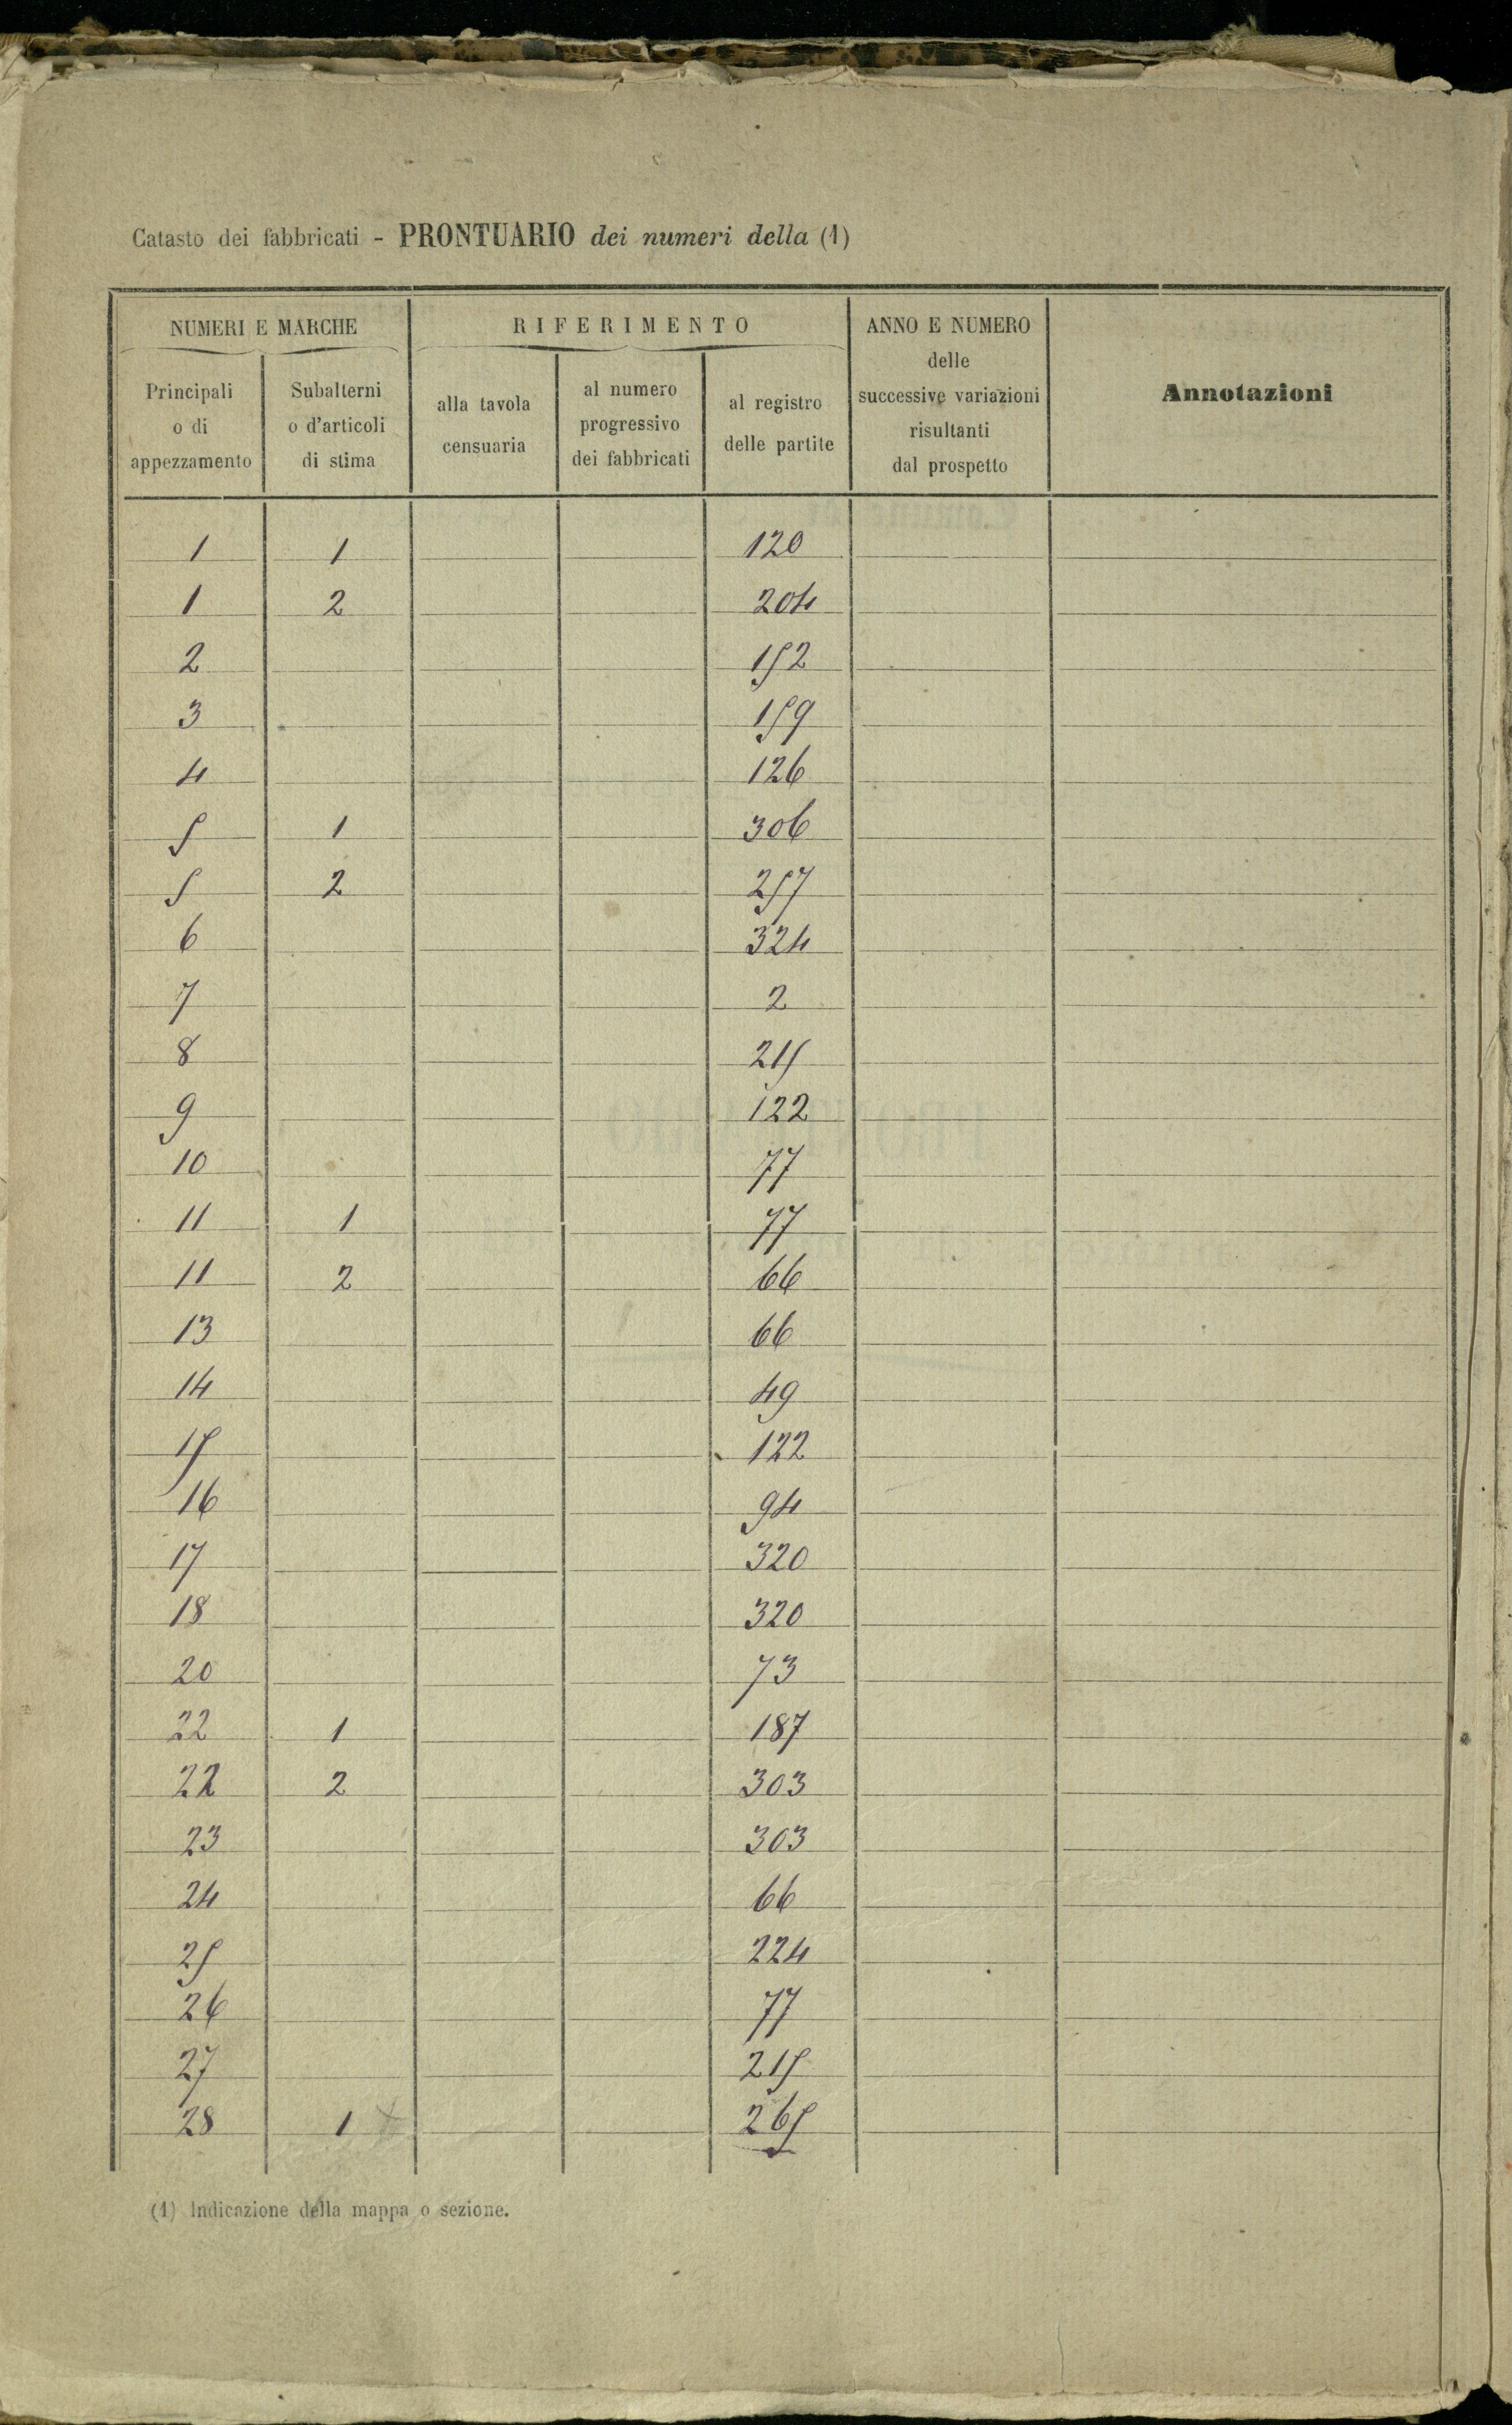 Catasto dei fabbricati - PRONTUARIO dei numeri della (1)
NUMERI E MARCHE
Principali
o di
appezzamento
Subalterni
o d'articoli
di stima
RIFERIMENTO
alla tavola
censuaria
al numero
progressivo
dei fabbricati
al registro
delle partite
ANNO E NUMERO
delle
successive variazioni
risultanti
dal prospetto
Annotazioni
1 1 120
1 2 204
2 152
3 159
4 126
5 1 306
5 2 257
6 324
7 2
8 215
9 122
10 77
11 1 77
11 2 66
13 66
14 49
15 122
16 94
17 320
18 320
20 73
22 1 187
22 2 303
23 303
24 66
25 224
26 77
27 215
28 1 265
(1) Indicazione della mappa o sezione.